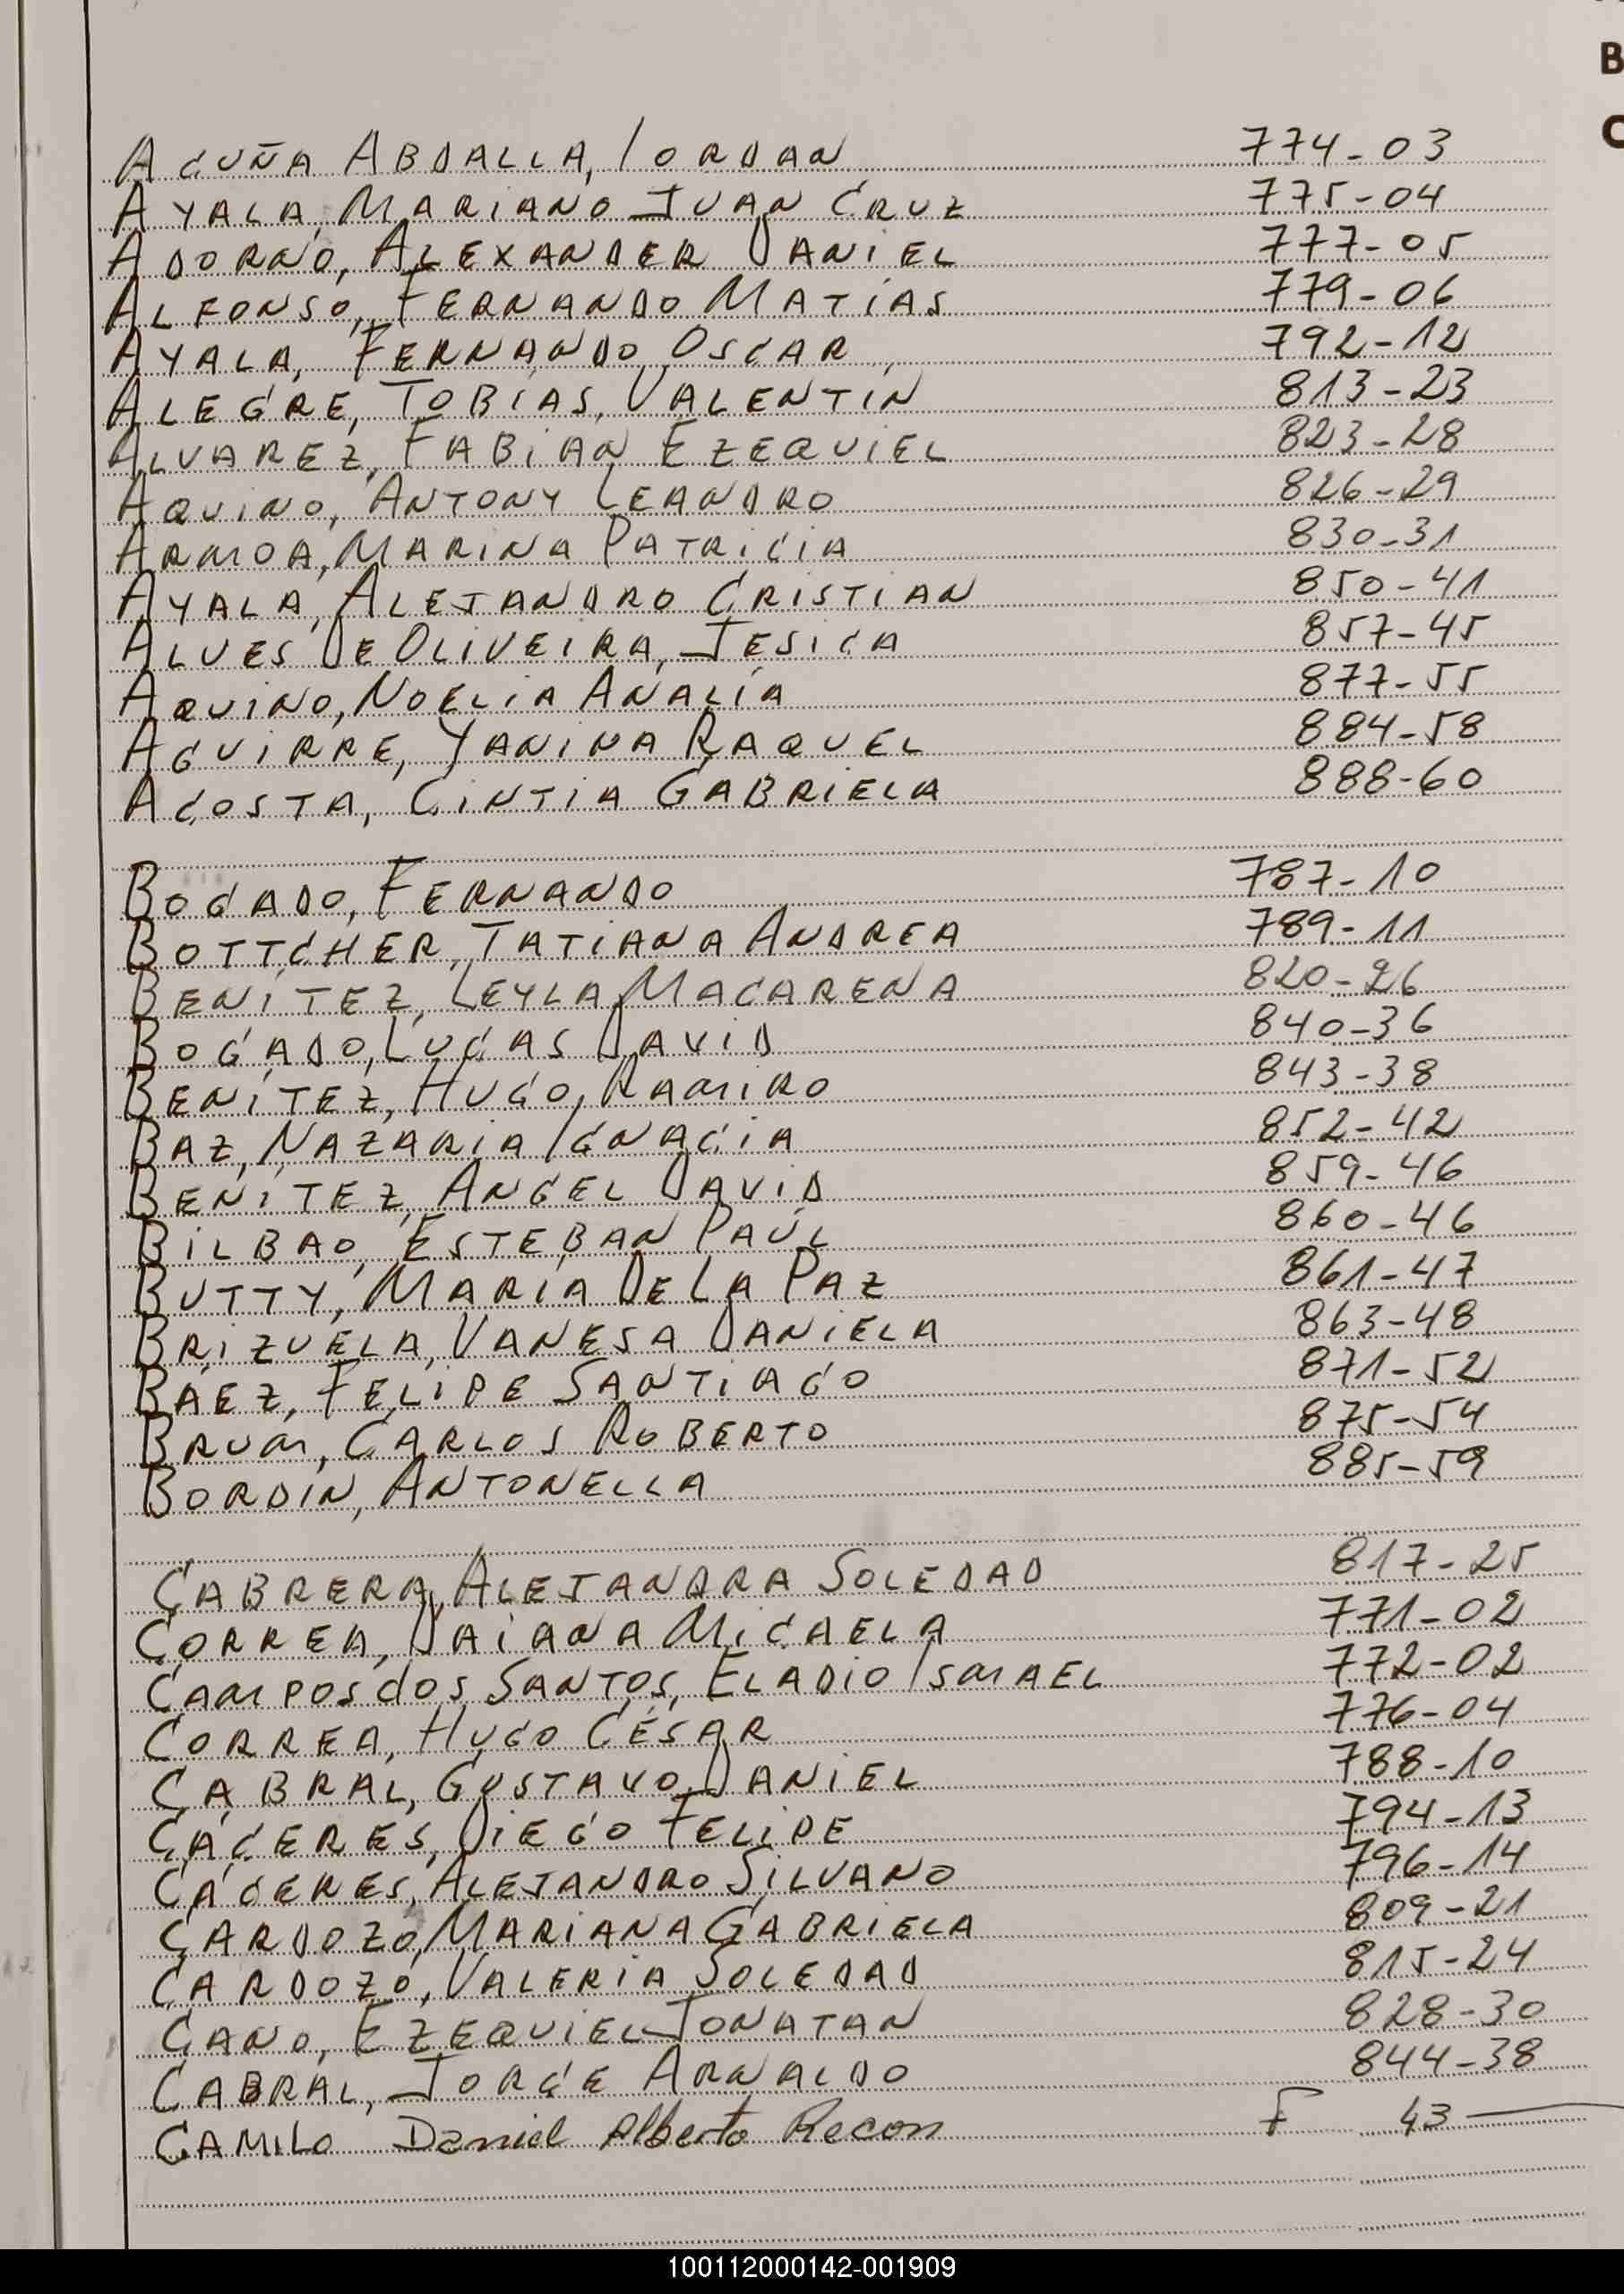 B
C
ACUÑA ABDALLA, IORDAN 774-03
AYALA, MARIANO JUAN CRUZ 775-04
ADORNO, ALEXANDER DANIEL 777-05
ALFONSO, FERNANDO MATÍAS 779-06
AYALA, FERNANDO OSCAR 792-12
ALEGRE, TOBÍAS VALENTÍN 813-23
ALVAREZ, FABIÁN EZEQUIEL 823-28
AQUINO, ANTONY LEANDRO 826-29
ARMOA, MARINA PATRICIA 830-31
AYALA, ALEJANDRO CRISTIAN 850-41
ALVES DE OLIVEIRA, JESICA 857-45
AQUINO, NOELIA ANALÍA 877-55
AGUIRRE, YANINA RAQUEL 884-58
ACOSTA, CINTIA GABRIELA 888-60
BOGADO, FERNANDO 787-10
BOTTCHER, TATIANA ANDREA 789-11
BENÍTEZ, LEYLA MACARENA 820-26
BOGADO, LUCAS DAVID 840-36
BENÍTEZ, HUGO RAMIRO 843-38
BAZ, NAZARIA IGNACIA 852-42
BENÍTEZ, ANGEL DAVID 859-46
BILBAO, ESTEBAN PAÚL 860-46
BUTTY, MARÍA DE LA PAZ 861-47
BRIZUELA, VANESA DANIELA 863-48
BÁEZ, FELIPE SANTIAGO 871-52
BRUM, CARLOS ROBERTO 875-54
BORDIN, ANTONELLA 885-59
CABRERA, ALEJANDRA SOLEDAD 817-25
CORREA, DAIANA MICAELA 771-02
CAMPOS dos SANTOS, ELADIO ISMAEL 772-02
CORREA, HUGO CÉSAR 776-04
CABRAL, GUSTAVO DANIEL 788-10
CÁCERES, DIEGO FELIPE 794-13
CÁCERES, ALEJANDRO SILVANO 796-14
CARDOZO, MARIANA GABRIELA 809-21
CARDOZO, VALERIA SOLEDAD 815-24
CANO, EZEQUIEL JONATAN 828-30
CABRAL, JORGE ARNALDO 844-38
CAMILO Daniel Alberto Recon F 43
100112000142-001909